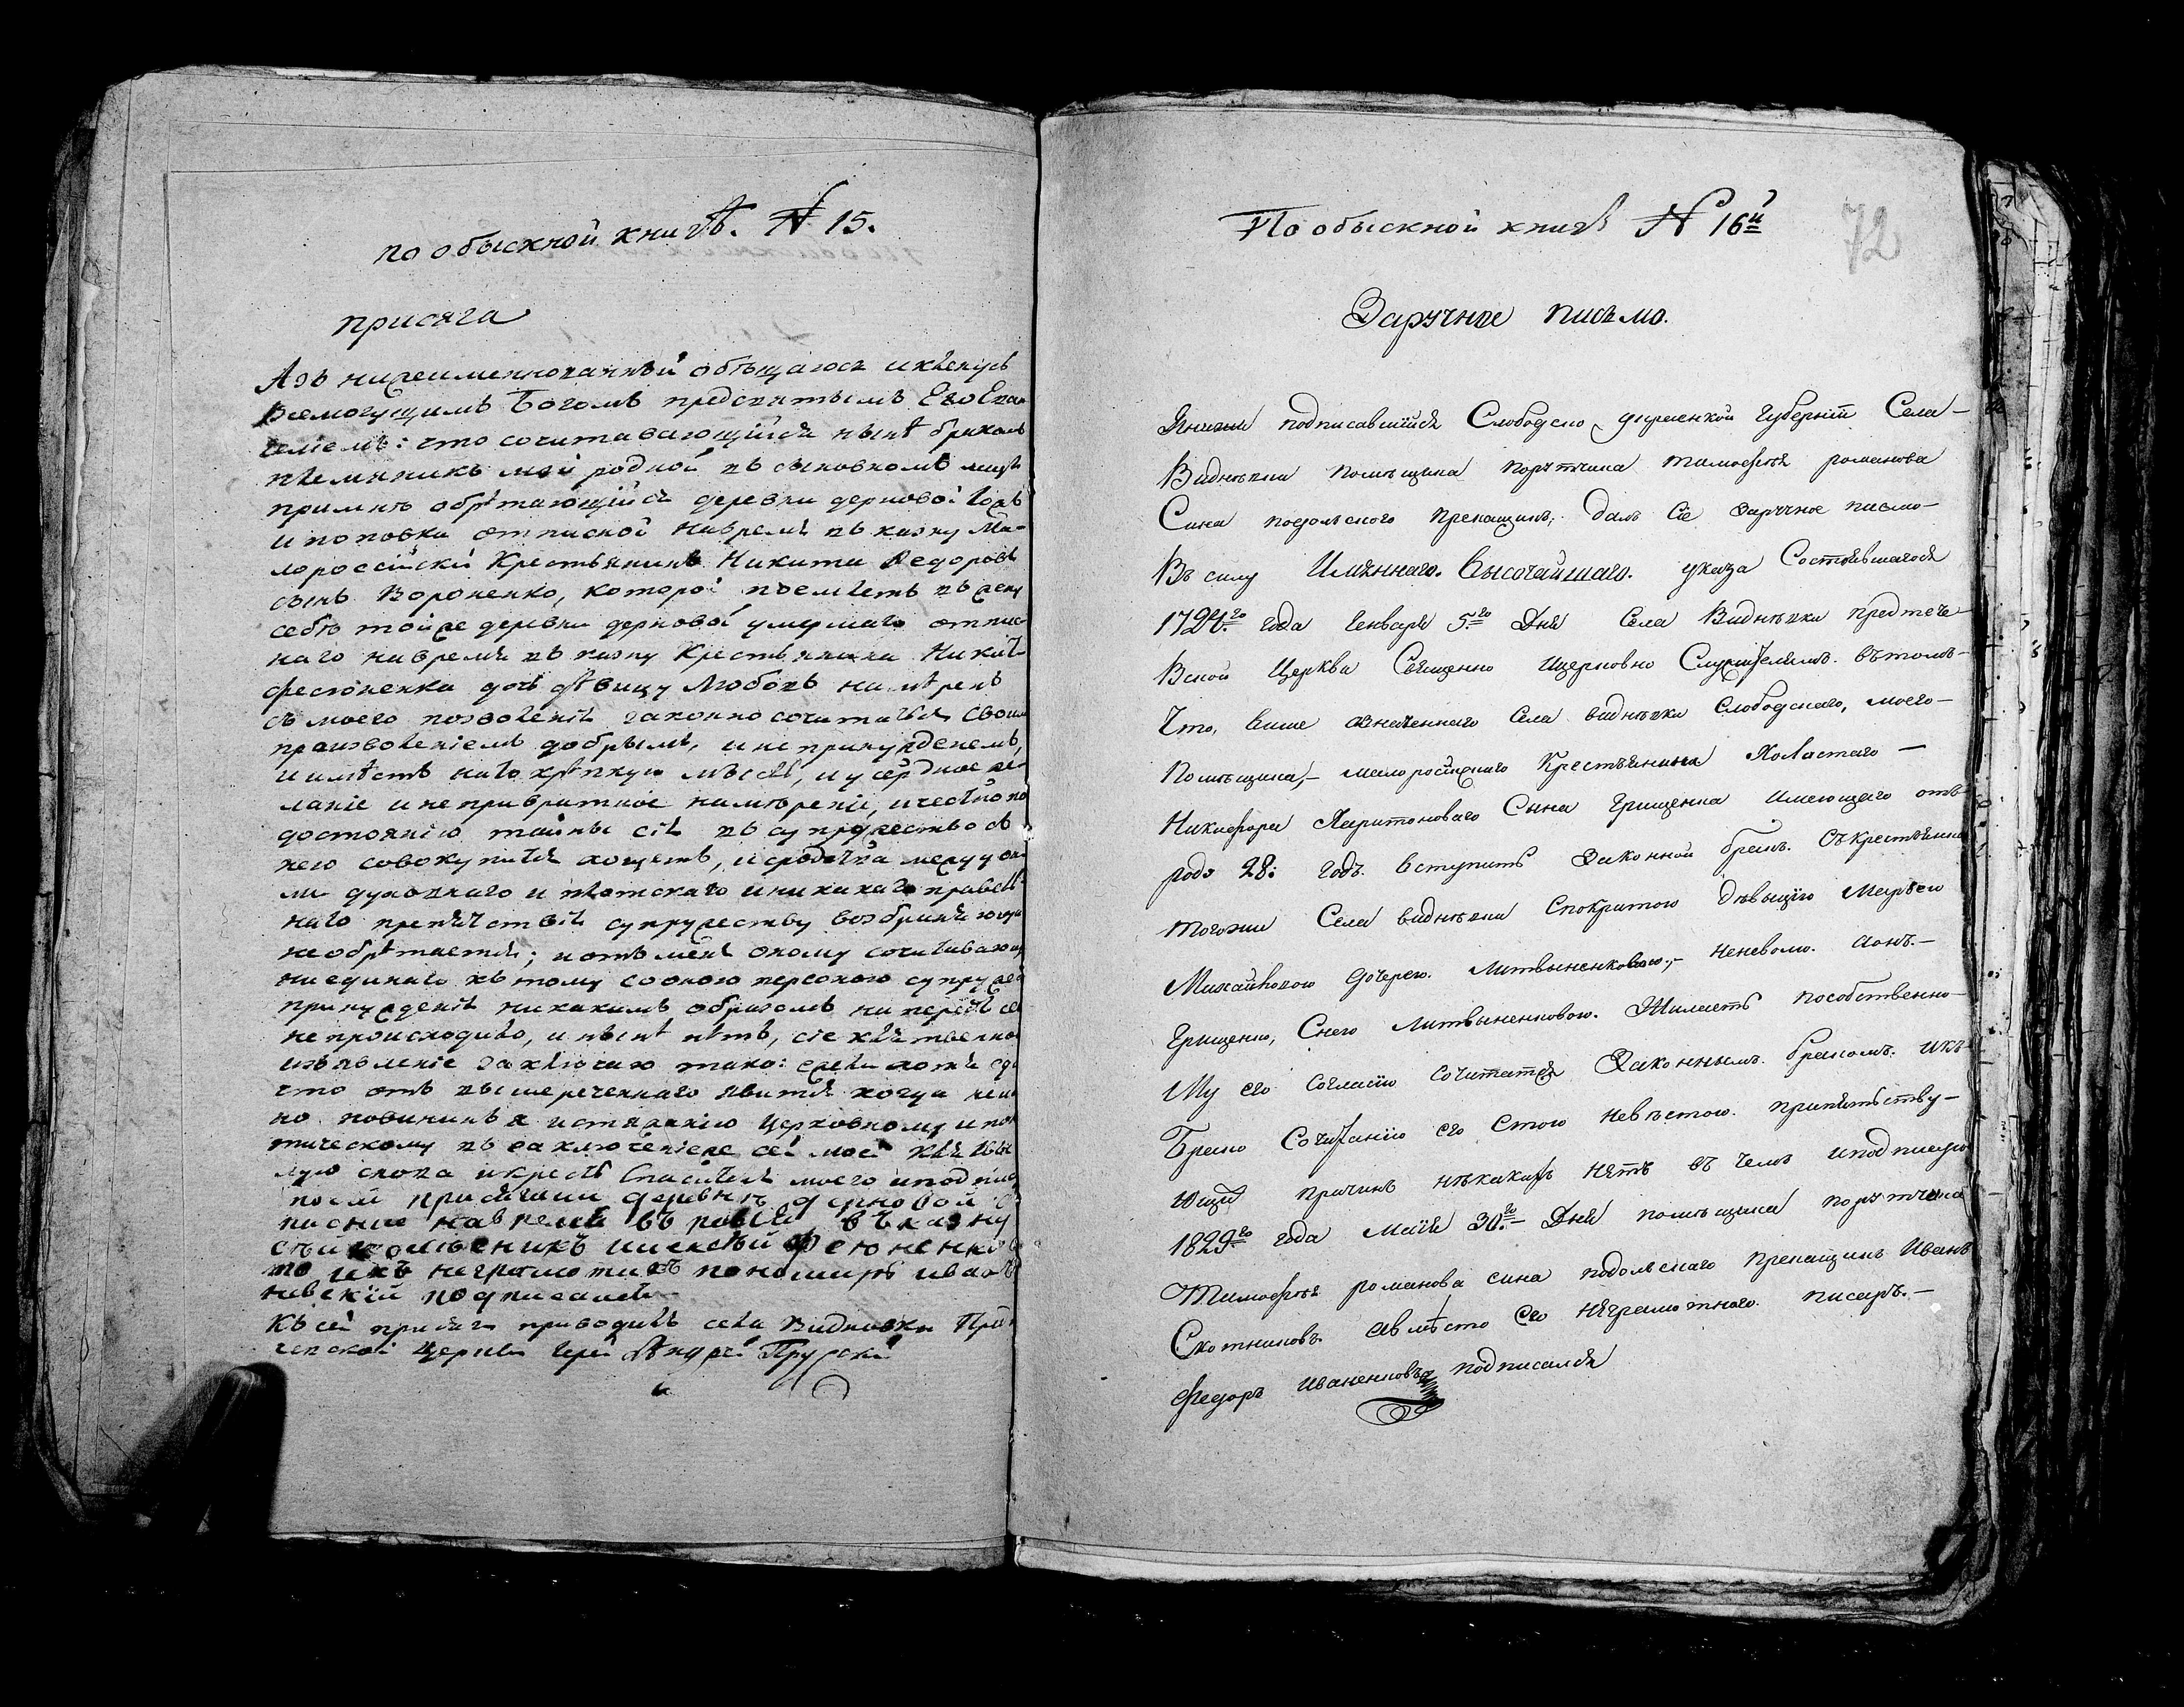 по обыскной книгѣ. № 15.
присяга
Азъ нижеименнованный обѣщаюсь и кленусь
Всемогущимъ Богомъ предсвятымъ Его Еван
геліемъ: что сочитавающійся нынѣ бракомъ
племянникъ мой родной въ сыновномъ мѣсте
обрѣтающійся деревни дерновой
и поповки отписной навремя въ казну Ма-
лороссійскій Крестьянинъ Никита Ѳедоровъ
сынъ Вороненко, которой поемлетъ въ жену
себѣ тойже деревни дерновой умершаго отпис
наго навремя въ казну Крестьянина
Фесюненка дочь дѣвицу Любовь намѣренъ
съ моего позволенія законно сочитатся своимъ
произволеніемъ добрымъ, и не принужденемъ,
и имѣетъ на то крѣпкую мысль, и усердное же-
ланіе и непривратное намѣреніе, и честно по
достоянію тайны сія въ супружество съ
нею совокупится хощетъ, и сродства между он
ми духовнаго и плотскаго и никакаго правель
наго препятствія супружеству возбраняющаго
необрѣтается; и отъ мене оному сочитаваю
ниединаго къ тому соною персоною супруже
принужденія никакимъ образомъ ни передъ се
непроисходило, и нынѣ нѣтъ, сіе клятвенное
изъявленіе заключаю тако: ежели хотя едино
что отъ вышереченнаго явится когда
но повиненъ я истязанію Церковному и пол
тическому въ заключеніеже сей моей клятвы
лую слова и крестъ Спасителя моего
посей присяги деревни дерновой
писние навремя въ казну
неграмотнаго пономарь
невскій подписался
Къ сей присяги приводилъ села Видновки Пред
чевской Церкви Іерей Андрей Прурскій
72
По обыскной книгѣ № 16й
Заручное письмо.
подписавшійся Слободско украенкой Губерніи Села-
Виднѣвки помѣщика порутчика тимофѣя романова
Сина подольского прекащикъ; далъ Сіе заручное писмо-
Въ силу Имяннаго. Высочайшаго. указа Состоявшагося
1724го года Генваря 5го Дня Села Виднѣвки предтече-
Вской Церкви Священно Ицерковно Служителямъ. вътомъ-
Что, выше означеннаго Села виднѣвки Слободскаго, моего-
Помѣщика,- малоросійскаго Крестьянина Холастаго -
Никифора Харитоноваго Сына Грищенка Имеющаго отъ
роду 28: годъ. вступить Законной бракъ. Съкрестянина
тогожи Села виднѣвки Спокритою Дѣвыцію Марѣею
Михайловою дочерею. Литвыненковою;- неневолю. аонъ.-
Грищенко, Снею Литвыненковою. Жилаетъ пособственно-
Му его согласію сочитатся Законнымъ. бракомъ. икъ-
Брако Сочитанію его Стою невѣстою. припятьству-
Ющи причинъ нѣкакихъ нѣтъ въ чемъ иподписую
1829го года Маія 30го- Дня помѣщика порутчика
Тимофѣя романова сина подольскаго прекащикъ Иванъ
Скотниковъ. авмѣсто его неграмотнаго. писарь.-
Федоръ Иваненковъ подписался